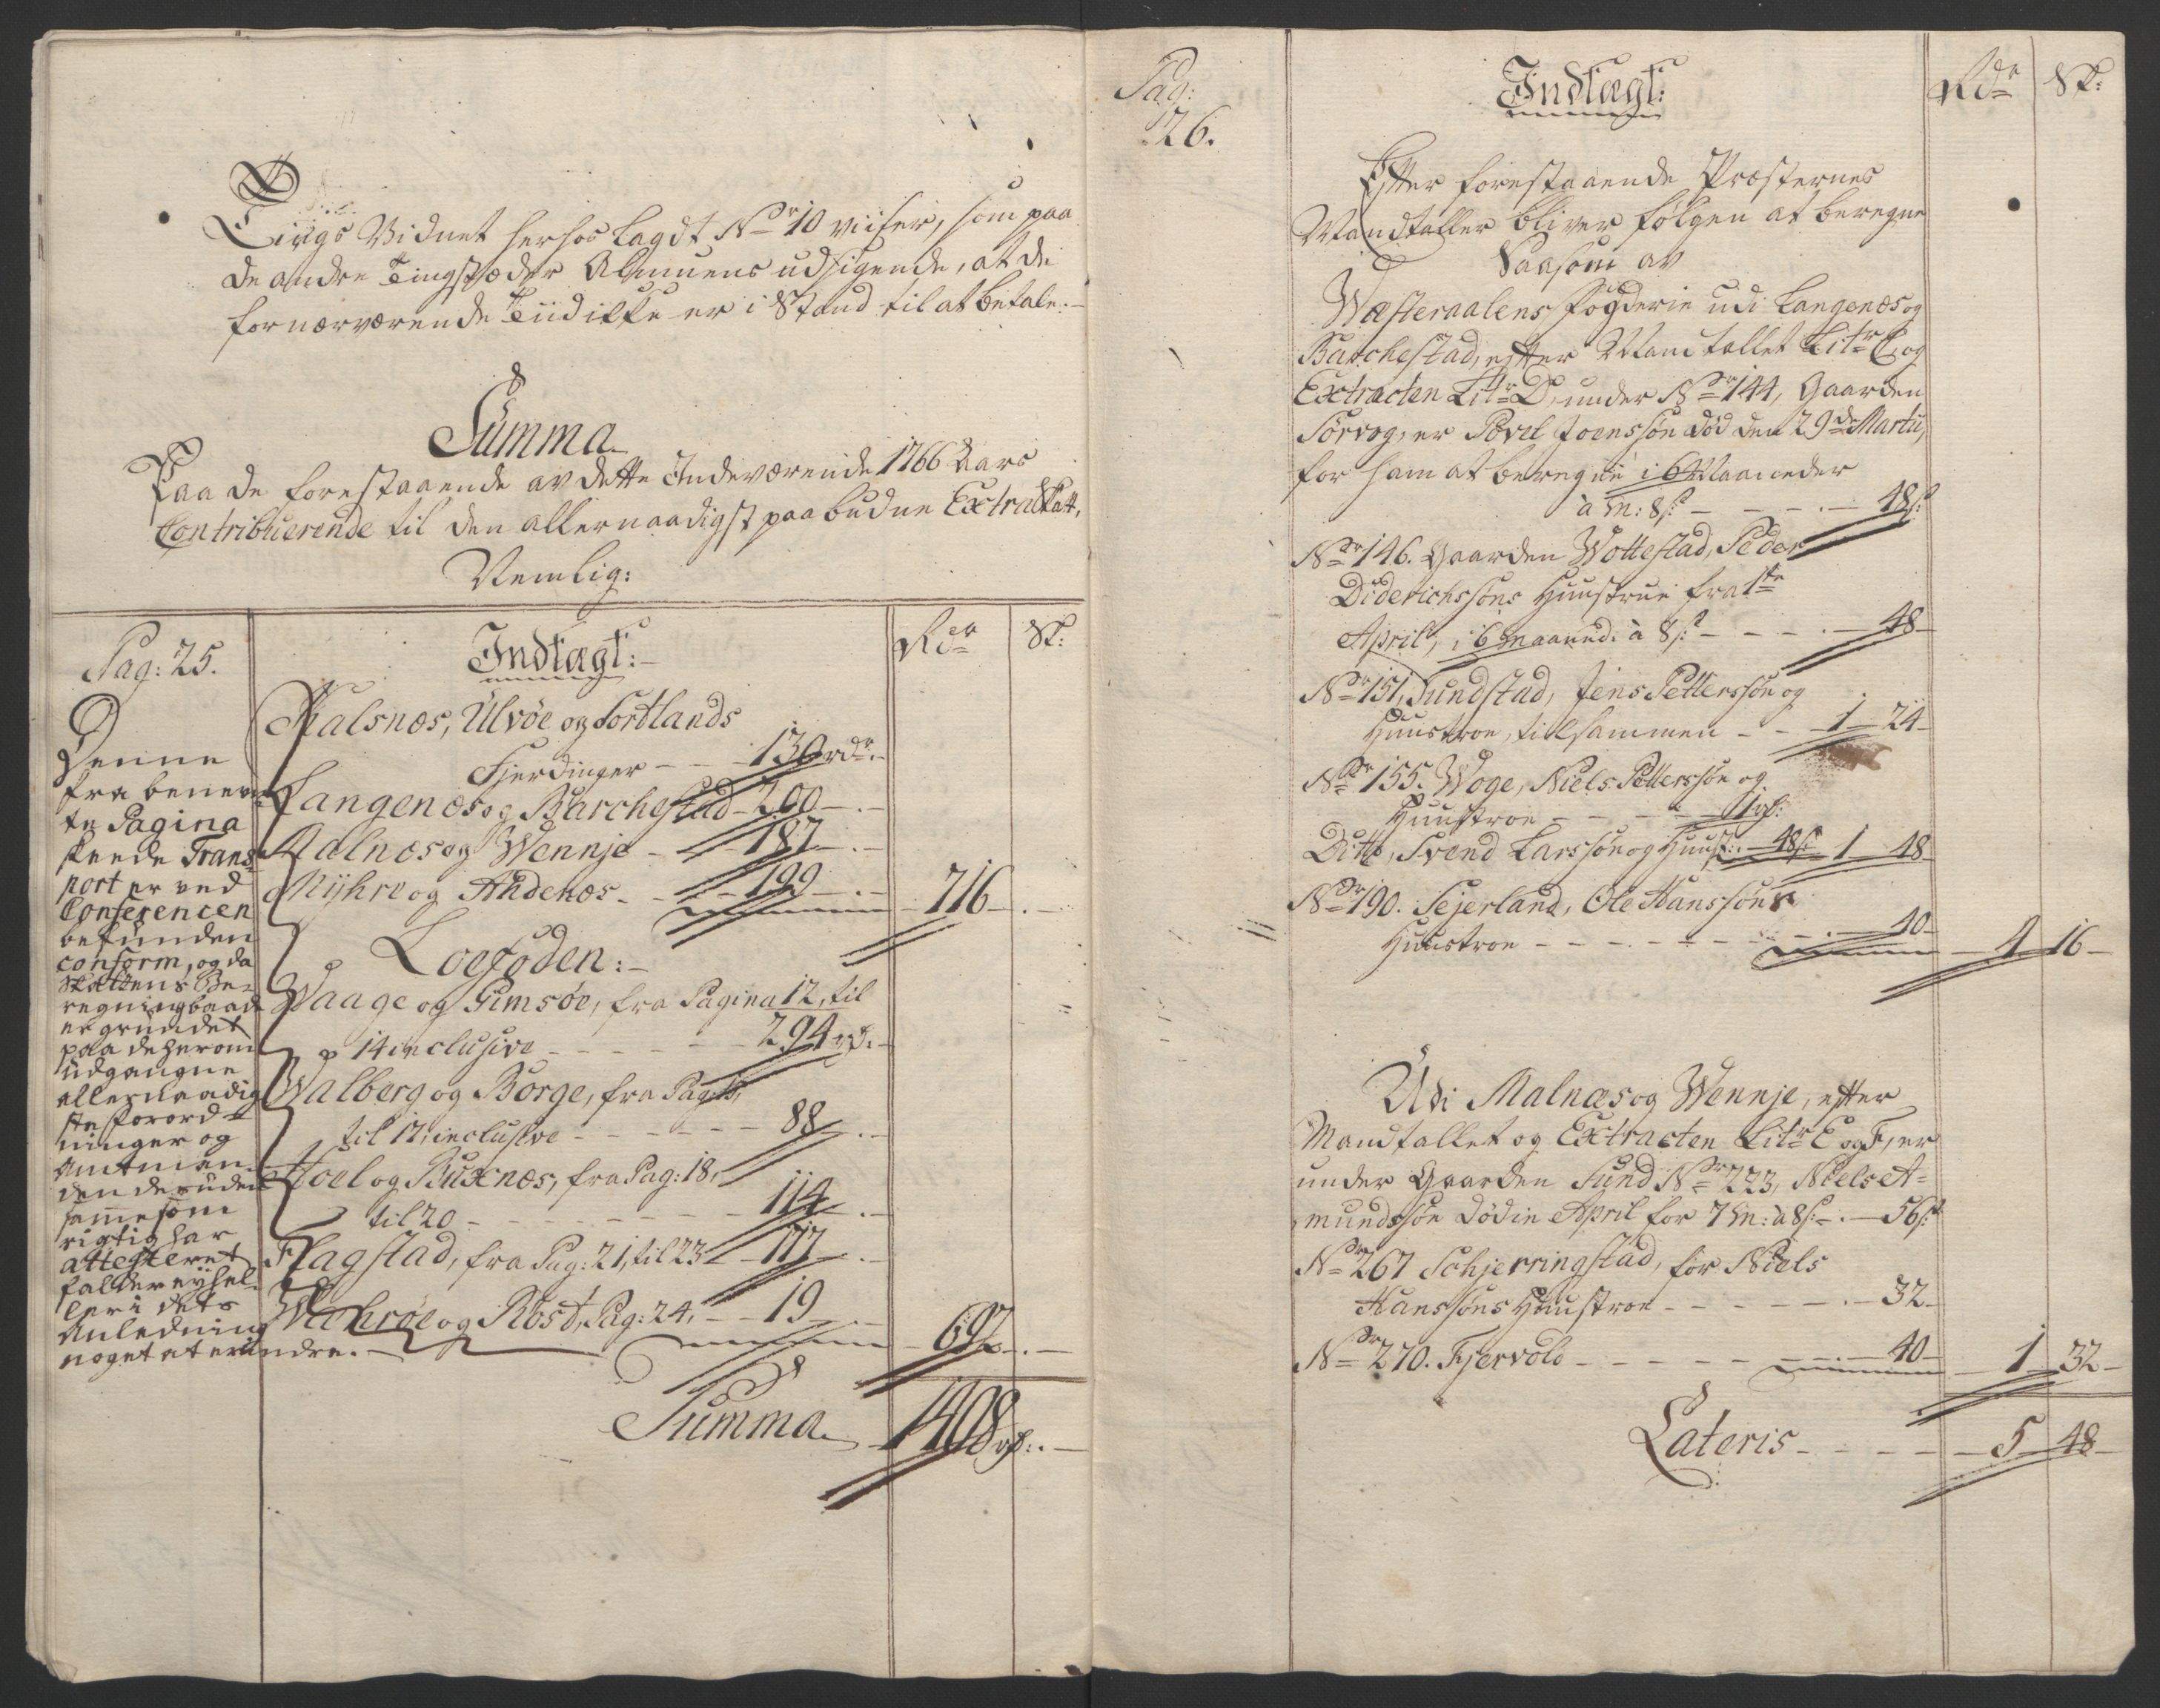 Tings Vidnet herhos Lagdt No 10 viiser, som paa
de andre Tingstæder Almuens udsigende, at de
for nærværende Tiid ikke er i Stand til at betale.
Summa
Paa de forestaaende av dette Indeværende 1766 Aars
Contribuerende til den allernaadigst paabudne Extra Skatt,
Nemlig:
Pag: 25.
Indtægt:
Rdr
Sk:
Denne
fra benevn-
te Pagina
skeede Trans-
port er ved
Conferencen
befunden
conform, og da
Skattens Be-
regning baade
er grundet
paa de herom
udgangne
allernaadig-
ste Forord-
ninger og
Amtman-
den desuden
samme som
rigtig har
attesteret
falder ey hel-
ler i dets
Anledning
noget at erindre.
Halsnæs, Ulvøe og Sortlands
Fjerdinger - - 130 rdr. -
Langenæs og Barchestad - 200 - . -
Malnæs og Wennje - - 187 - . -
Myhre og Andenæs - - 199 - . - 716 - . -
Loefoden: -
Waage og Gimsøe, fra Pagina 12, til
p 14 inclusive - - - - - 294 rd: -
Walberg og Borge, fra Pag: 15,
til 17, inclusive - - - - - 88 - . -
Hoel og Buxnæs, fra Pag: 18,
til 20 - - - - - 114 - . -
Flagstad, fra Pag: 21, til 23 - 177 - . -
Wehrøe og Røst, Pag: 24, - - 19 - . - 692 - . -
Summa 1408 rd: . -
Pag:
26.
Indtægt:
Rdr
Sk:
Efter forestaaende Præsternes
Mandtaller bliver følgen at beregne
Saasom av
Westeraalens Fogderie udi Langenæs og
Barchestad, efter Mandtallet Litr C, og
Extracten Litr D, under No 144, Gaarden
Sørvog, er Povel Joenssøn død den 29de Martii,
for ham at beregne i 6 Maaneder
à m: 8 s: - - - . - 48 s:
No 146. Gaarden Wottestad, Peder
Diderichssøns Huustrue fra 1ste
April, i 6 maaned: à 8 s: - - - . - 48 -
No 151, Sundstad, Jens Pettersøn og
Huustroe, tilsammen - - - 1 - 24 -
No 155. Woge, Niels Petterssøn og
Huustroe - - - - 1 rd:
Ditto, Svend Larssøn og Huust: . - 48 s: 1 - 48 -
No 190. Sejerland, Ole Hanssøns
Huustroe - - - - - - . - 40 - 4 - 16 -
Udi Malnæs og Wennje, efter
Mandtallet og Extracten Litr E og F, er
under Gaarden Sund No 223, Niels A-
mundssøn død in April for 7 m: à 8 s: - . - 56 s:
No 267 Schjerringstad, for Niels
Hanssøns Huustroe - - - - - . - 32 -
No 270. Fjervold - - - - - . - 40 - 1 - 32 -
Lateris - - - - 5 - 48 -